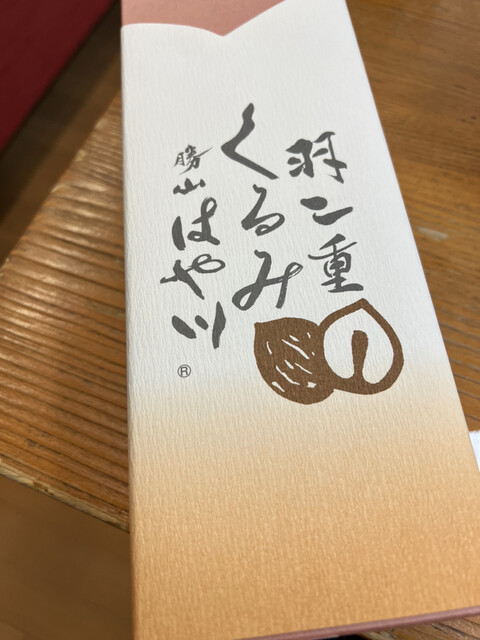 羽二重
くるみ
勝山
はや川
®